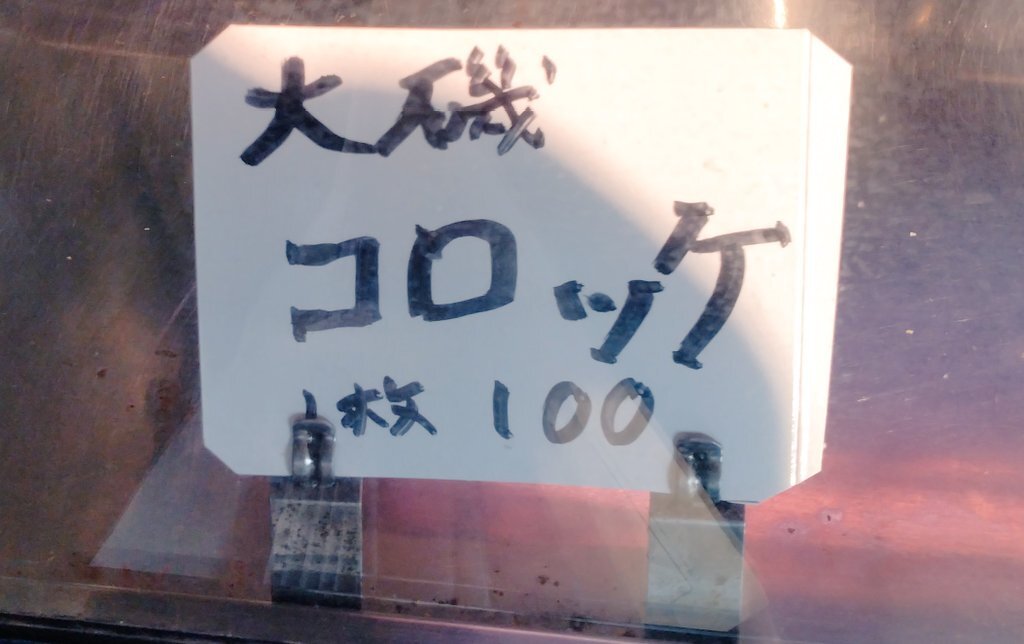 大磯
コロッケ
1枚 100